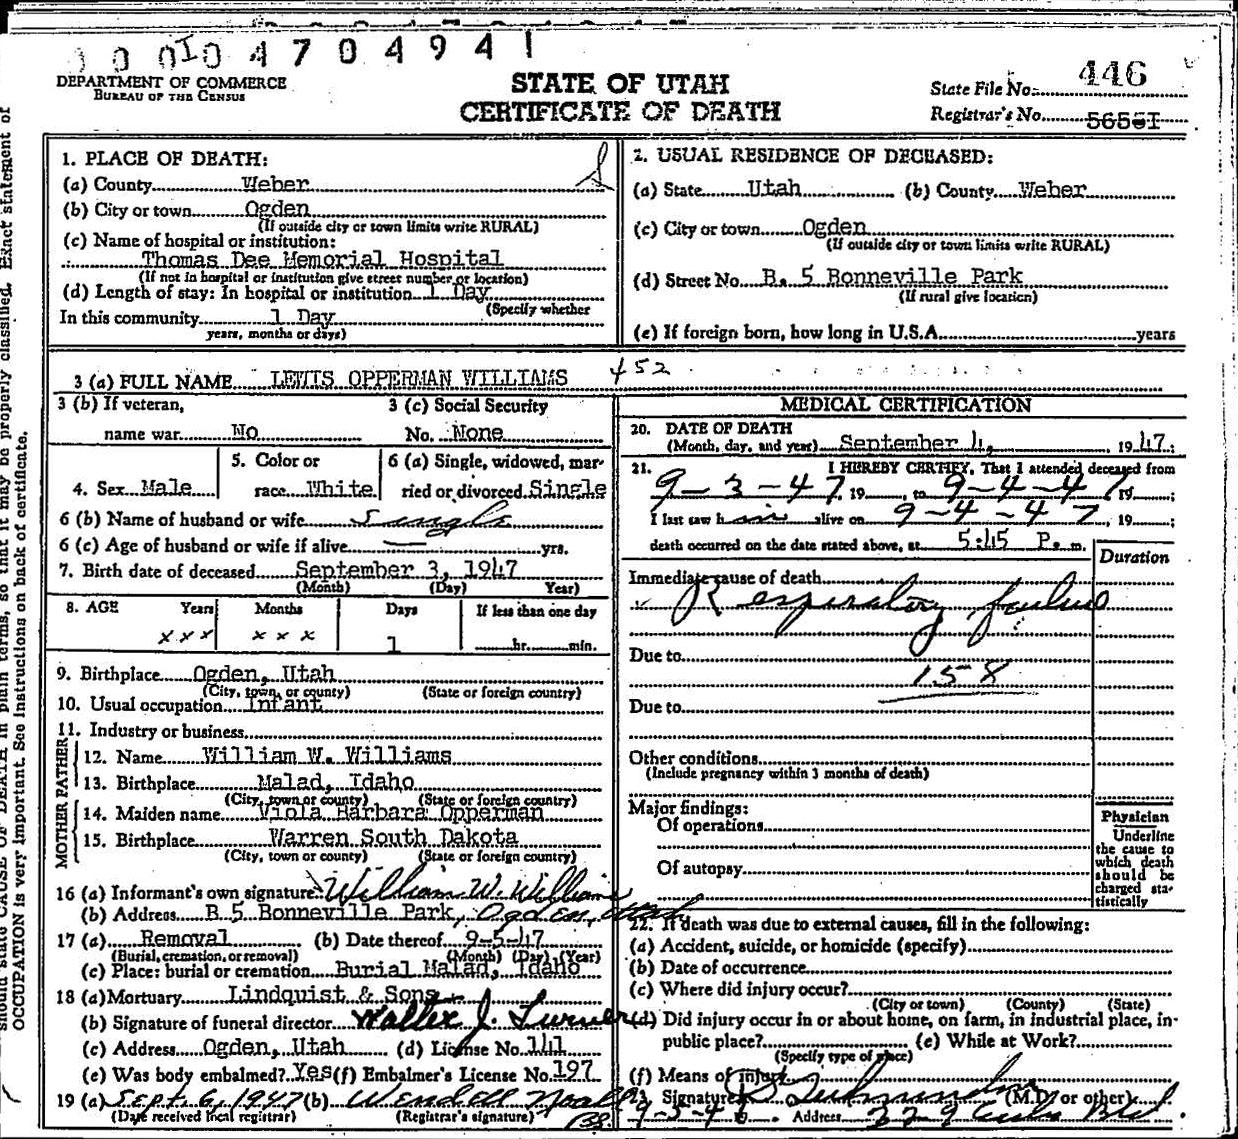 1 0 0 I 0 4 7 0 4 9 4 1
DEPARTMENT OF COMMERCE
BUREAU OF THE CENSUS
STATE OF UTAH
CERTIFICATE OF DEATH
State File No. 446
Registrar's No. 5656I
1. PLACE OF DEATH:
(a) County Weber
(b) City or town Ogden
(If outside city or town limits write RURAL)
(c) Name of hospital or institution:
Thomas Dee Memorial Hospital
(If not in hospital or institution give street number or location)
(d) Length of stay: In hospital or institution 1 Day
(Specify whether
In this community 1 Day
years, months or days)
2. USUAL RESIDENCE OF DECEASED:
(a) State Utah (b) County Weber
(c) City or town Ogden
(If outside city or town limits write RURAL)
(d) Street No B. 5 Bonneville Park
(If rural give location)
(e) If foreign born, how long in U.S.A. years
3 (a) FULL NAME LEWIS OPPERMAN WILLIAMS 452
3 (b) If veteran,
name war No
3 (c) Social Security
No. None
4. Sex Male
5. Color or
race White
6 (a) Single, widowed, mar-
ried or divorced Single
6 (b) Name of husband or wife Single
6 (c) Age of husband or wife if alive — yrs.
7. Birth date of deceased September 3, 1947
(Month) (Day) Year)
8. AGE Years Months Days If less than one day
xxx xxx 1 hr. min.
9. Birthplace Ogden, Utah
(City, town, or county) (State or foreign country)
10. Usual occupation Infant
11. Industry or business
FATHER
12. Name William W. Williams
13. Birthplace Malad, Idaho
(City, town or county) (State or foreign country)
MOTHER
14. Maiden name Viola Barbara Opperman
15. Birthplace Warren South Dakota
(City, town or county) (State or foreign country)
16 (a) Informant's own signature William W. Williams
(b) Address B 5 Bonneville Park, Ogden, Utah
17 (a) Removal (b) Date thereof 9-5-47
(Burial, cremation, or removal) (Month) (Day) (Year)
(c) Place: burial or cremation Burial Malad, Idaho
18 (a) Mortuary Lindquist & Sons
(b) Signature of funeral director Walter J. Turner
(c) Address Ogden, Utah (d) License No. 141
(e) Was body embalmed? Yes (f) Embalmer's License No. 197
19 (a) Sept. 6, 1947 (b) Wendell
(Date received local registrar) (Registrar's signature)
MEDICAL CERTIFICATION
20. DATE OF DEATH
(Month, day, and year) September 4, 1947;
21. I HEREBY CERTIFY, That I attended deceased from
9-3-47, 19 , to 9-4-47, 19 ;
I last saw him alive on 9-4-47, 19 ;
death occurred on the date stated above, at 5:45 P. m.
Duration
Immediate cause of death
Respiratory failure
Due to
158
Due to
Other conditions
(Include pregnancy within 3 months of death)
Major findings:
Of operations
Of autopsy
Physician
Underline
the cause to
which death
should be
charged sta-
tistically
22. If death was due to external causes, fill in the following:
(a) Accident, suicide, or homicide (specify)
(b) Date of occurrence
(c) Where did injury occur?
(City or town) (County) (State)
(d) Did injury occur in or about home, on farm, in industrial place, in-
public place? (e) While at Work?
(Specify type of place)
(f) Means of injury
23. Signature (M.D. or other)
Address
should state CAUSE OF DEATH in plain terms, so that it may be properly classified. Exact statement of
OCCUPATION is very important. See instructions on back of certificate.